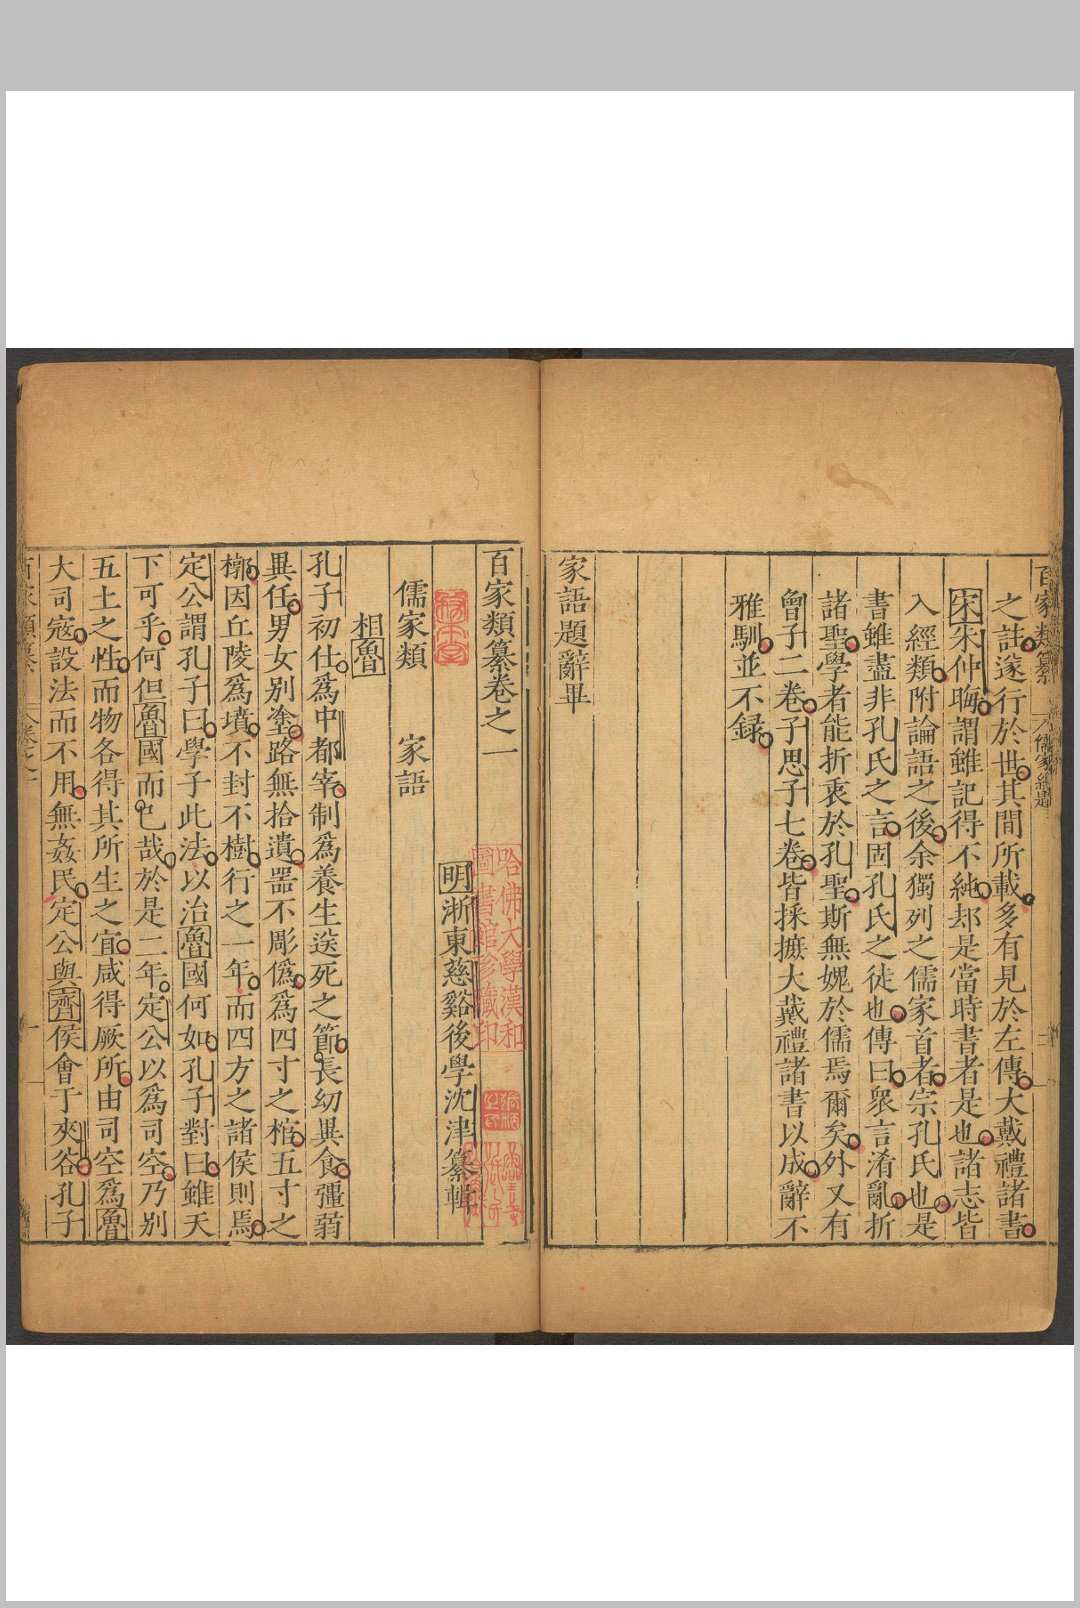 百家類纂
儒家緒
之註遂行於世其間所載多有見於左傳大戴禮諸書
宋朱仲晦謂雖記得不純却是當時書者是也諸志皆
入經類附論語之後余獨列之儒家首者宗孔氏也是
書雖盡非孔氏之言固孔氏之徒也傳曰衆言淆亂折
諸聖學者能折衷於孔聖斯無媿於儒焉爾矣外又有
曾子二卷子思子七卷皆採摭大戴禮諸書以成辭不
雅馴並不録
家語題辭畢
百家類纂卷之一
明浙東慈谿後學沈津纂輯
哈佛大學漢和
圖書館珍藏印
儒家類 家語
相魯
孔子初仕爲中都宰制爲養生送死之節長幼異食彊弱
異任男女別塗路無拾遺器不彫僞爲四寸之棺五寸之
槨因丘陵爲墳不封不樹行之一年而四方之諸侯則焉
定公謂孔子曰學子此法以治魯國何如孔子對曰雖天
下可乎何但魯國而已哉於是二年定公以爲司空乃別
五土之性而物各得其所生之宜咸得厥所由司空爲魯
大司寇設法而不用無姦民定公與齊侯會于夾谷孔子
百家類纂 卷之一